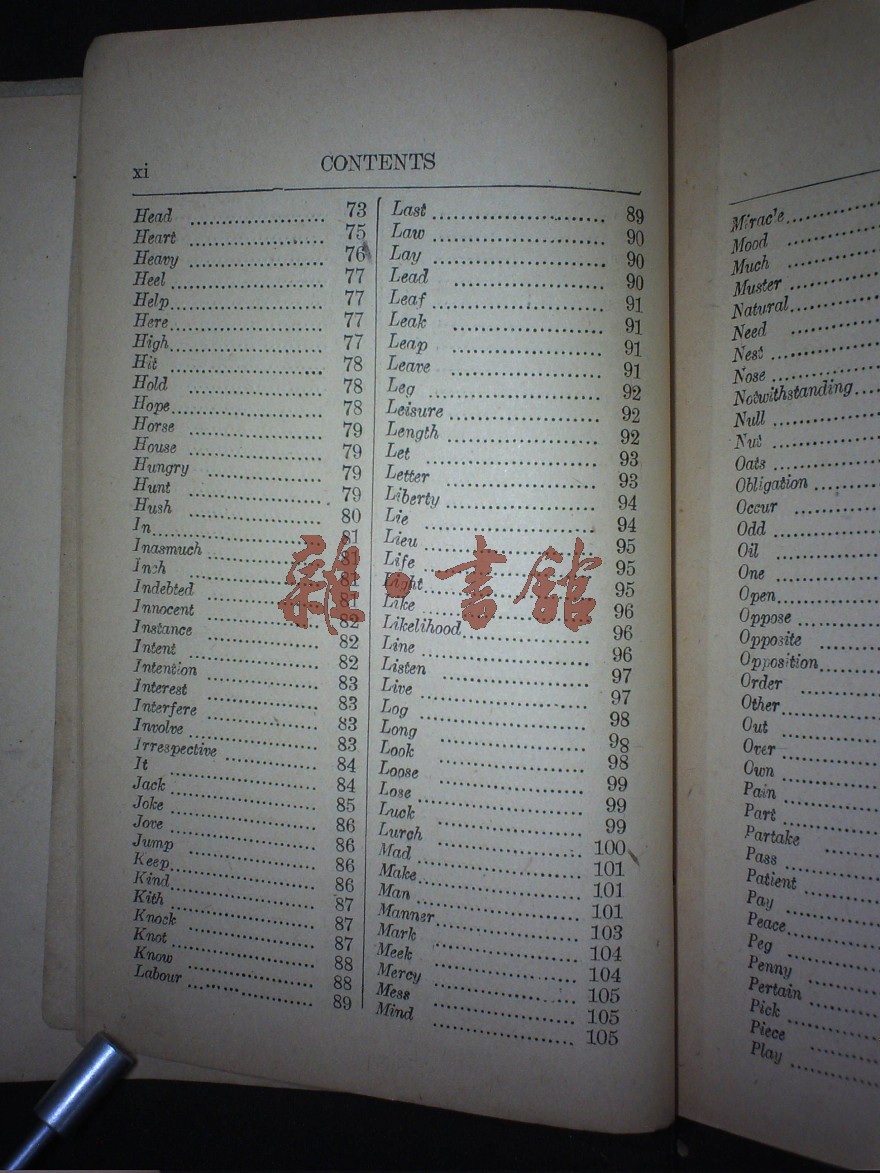 xi
CONTENTS
Head ........ 73
Heart ........ 75
Heavy ........ 76
Heel ........ 77
Help ........ 77
Here ........ 77
High ........ 77
Hit ........ 78
Hold ........ 78
Hope ........ 78
Horse ........ 79
House ........ 79
Hungry ........ 79
Hunt ........ 79
Hush ........ 80
In ........ 81
Inasmuch ........ 81
Inch ........ 81
Indebted ........ 81
Innocent ........ 82
Instance ........ 82
Intent ........ 82
Intention ........ 83
Interest ........ 83
Interfere ........ 83
Involve ........ 83
Irrespective ........ 84
It ........ 84
Jack ........ 85
Joke ........ 86
Jove ........ 86
Jump ........ 86
Keep ........ 86
Kind ........ 87
Kith ........ 87
Knock ........ 87
Knot ........ 88
Know ........ 88
Labour ........ 89
Last ........ 89
Law ........ 90
Lay ........ 90
Lead ........ 90
Leaf ........ 91
Leak ........ 91
Leap ........ 91
Leave ........ 91
Leg ........ 92
Leisure ........ 92
Length ........ 92
Let ........ 93
Letter ........ 93
Liberty ........ 94
Lie ........ 94
Lieu ........ 95
Life ........ 95
Light ........ 95
Like ........ 96
Likelihood ........ 96
Line ........ 96
Listen ........ 97
Live ........ 97
Log ........ 98
Long ........ 98
Look ........ 98
Loose ........ 99
Lose ........ 99
Luck ........ 99
Lurch ........ 100
Mad ........ 101
Make ........ 101
Man ........ 101
Manner ........ 103
Mark ........ 104
Meek ........ 104
Mercy ........ 105
Mess ........ 105
Mind ........ 105
雜·書館
Miracle ........
Mood ........
Much ........
Muster ........
Natural ........
Need ........
Nest ........
Nose ........
Notwithstanding ....
Null ........
Nut ........
Oats ........
Obligation ........
Occur ........
Odd ........
Oil ........
One ........
Open ........
Oppose ........
Opposite ........
Opposition ........
Order ........
Other ........
Out ........
Over ........
Own ........
Pain ........
Part ........
Partake ........
Pass ........
Patient ........
Pay ........
Peace ........
Peg ........
Penny ........
Pertain ........
Pick ........
Piece ........
Play ........